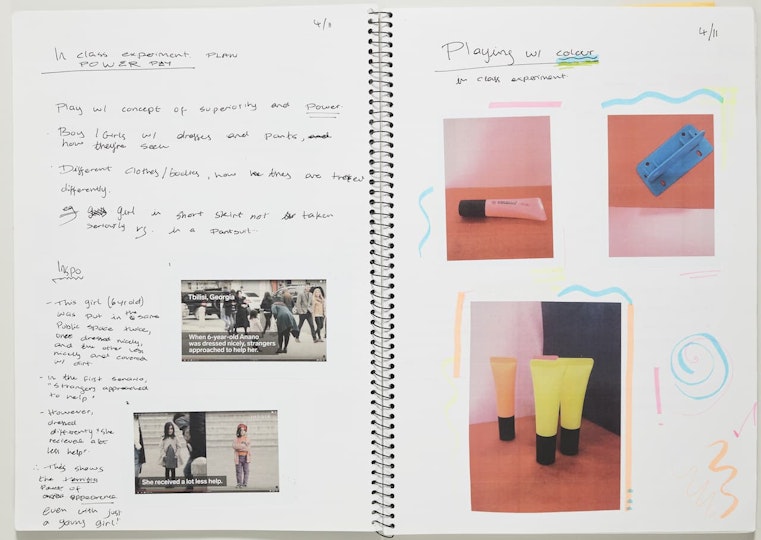 4/11
In class experiment PLAN
POWER PAY
Play w/ concept of superiority and Power
· Boys / Girls w/ dresses and pants, and
how they're seen
· Different clothes/bodies, how they are treated
differently.
eg girl in short skirt not taken
seriously vs. in a pantsuit..
Inspo
1
- This girl (6 yr old)
was put in the same
public space twice,
once dressed nicely,
and the other less
nicely and covered
w/ dirt
- in the first senario,
"strangers approached
to help"
- However,
dressed
differently "she
recieved a lot
less help"
∴ This shows
the
Power of
appearance
even with just
a young girl!
Tbilisi, Georgia
When 6-year-old Anano
was dressed nicely, strangers
approached to help her.
2
She received a lot less help.
4/11
Playing w/ colour
in class experiment